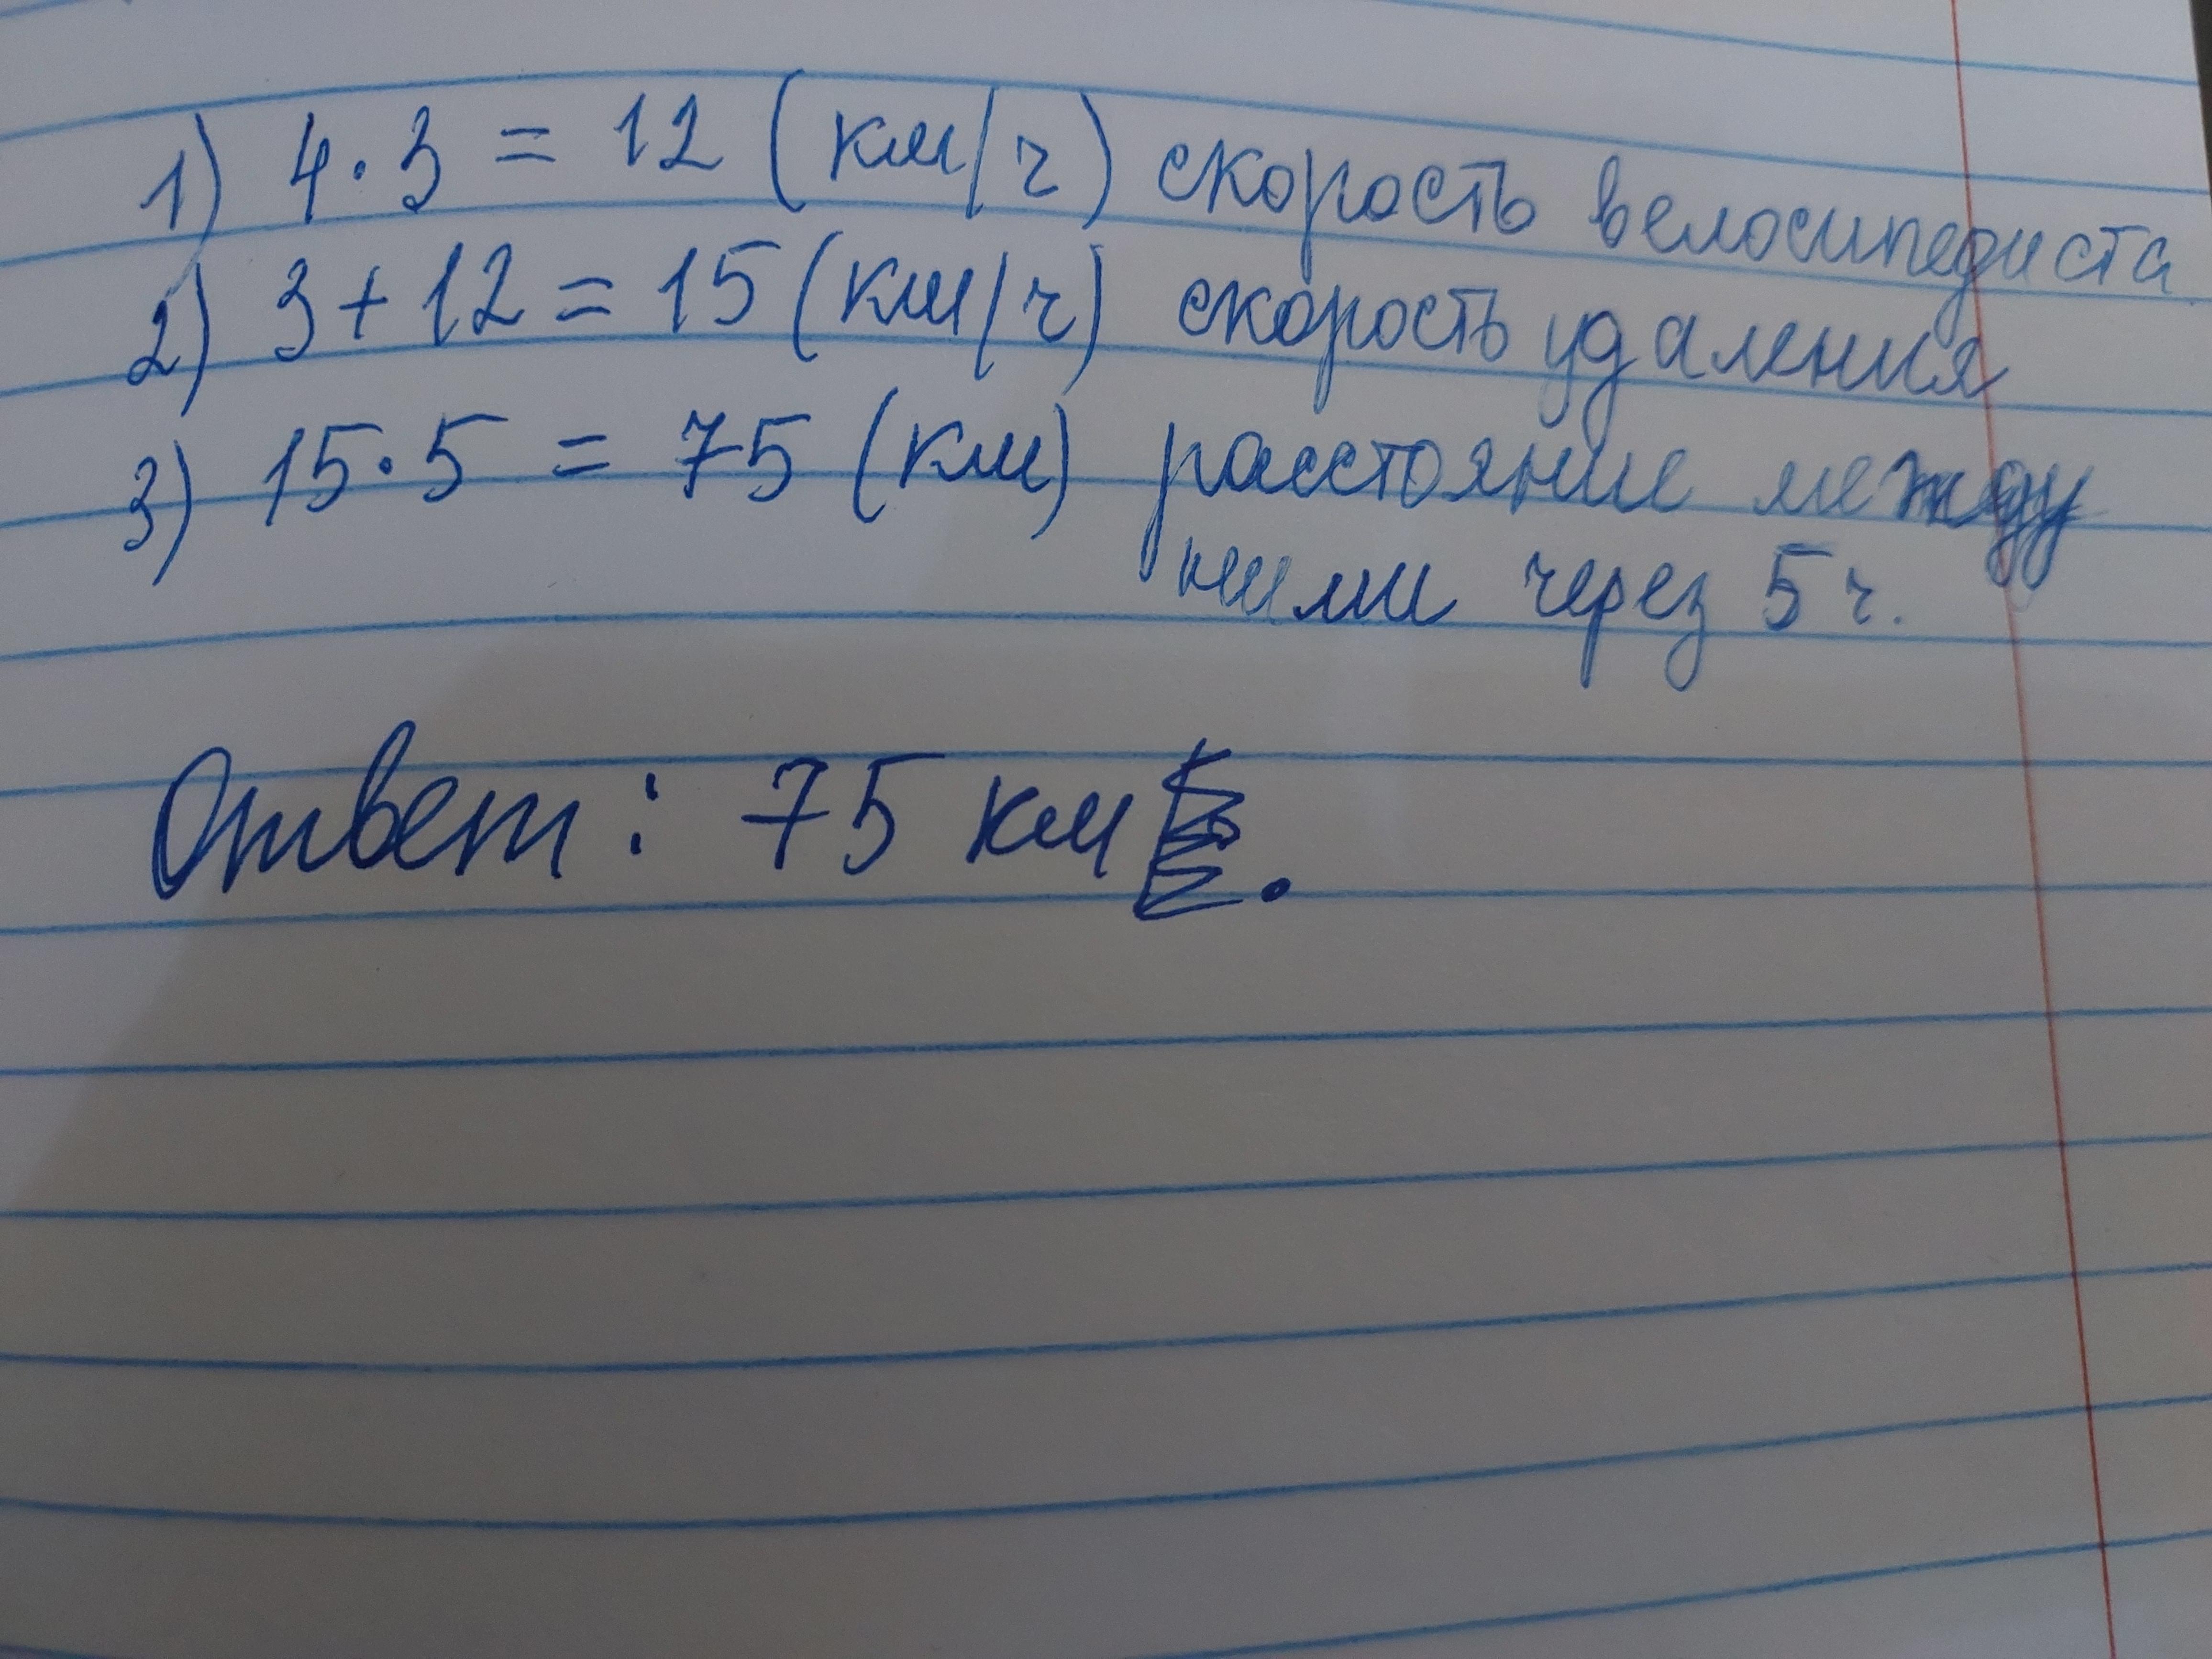 1) 4·3 = 12 (км/ч) скорость велосипедиста
2) 3+12=15 (км/ч) скорость удаления
3) 15·5 = 75 (км) расстояние между
ними через 5 ч.
Ответ: 75 км.